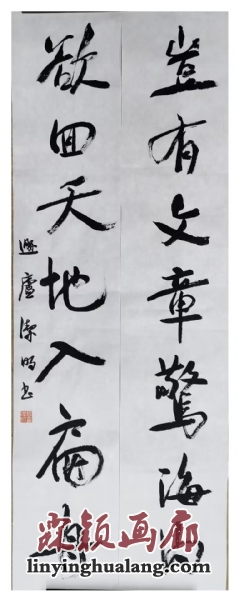 豈有文章驚海内
欲回天地入扁舟
廬
颖画廊
linyinghualang.com